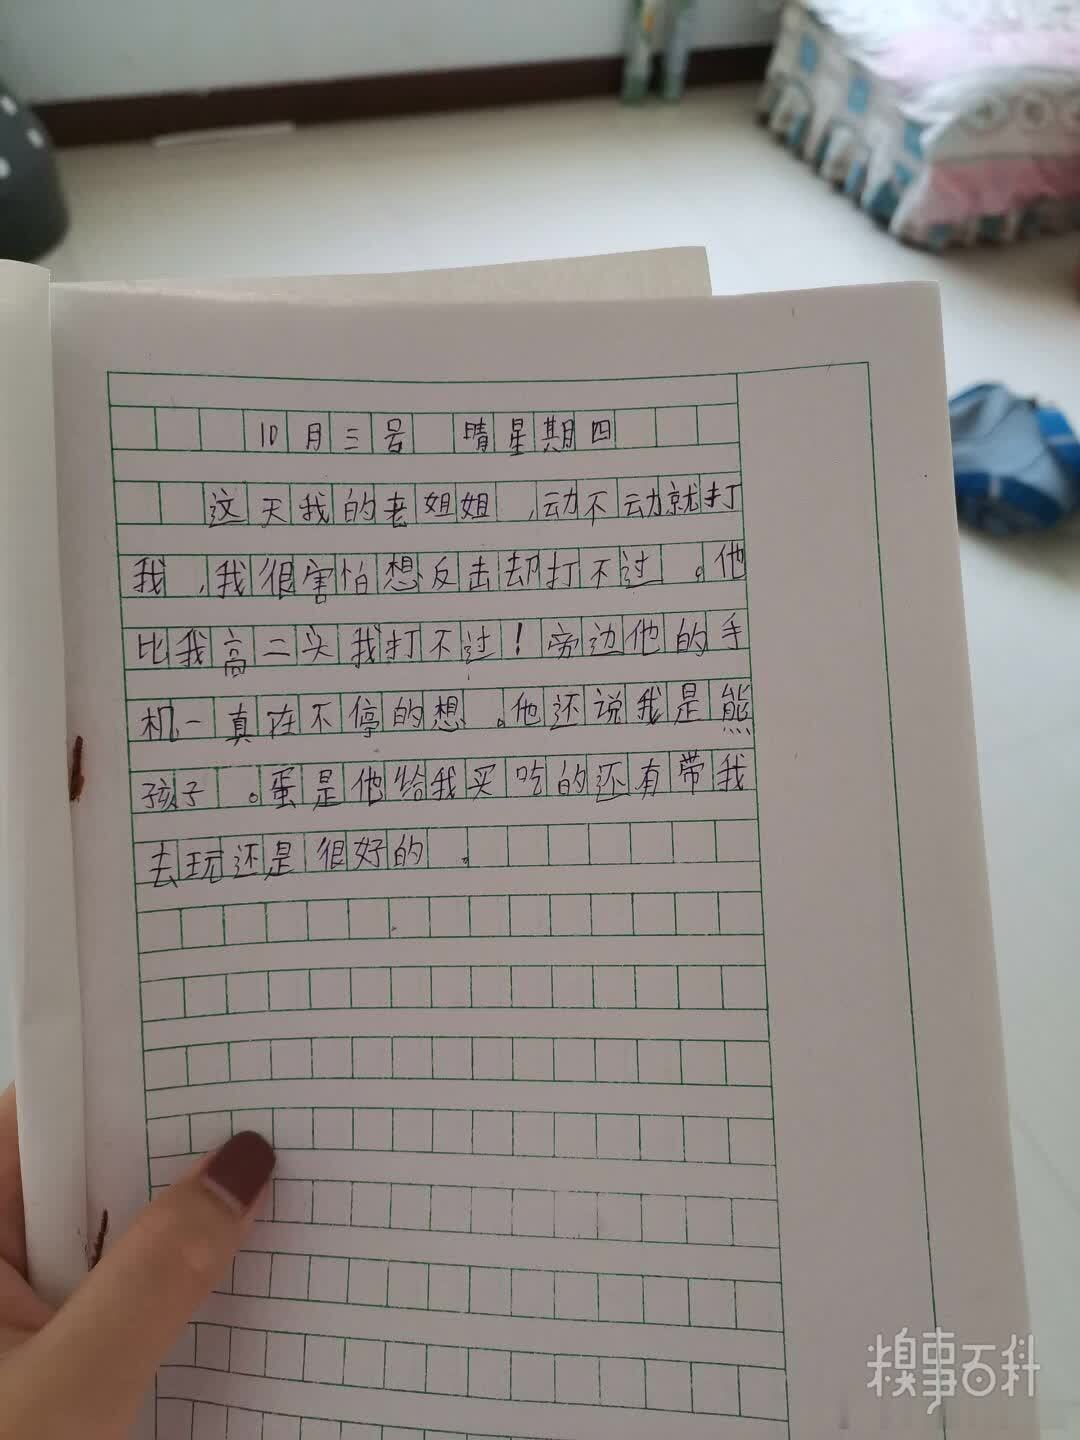 10月三号 晴星期四
这天我的老姐姐,动不动就打
我,我很害怕想反击却打不过。他
比我高二头我打不过!旁边他的手
机一真在不停的想。他还说我是熊
孩子。蛋是他给我买吃的还有带我
去玩还是很好的。
糗事百科